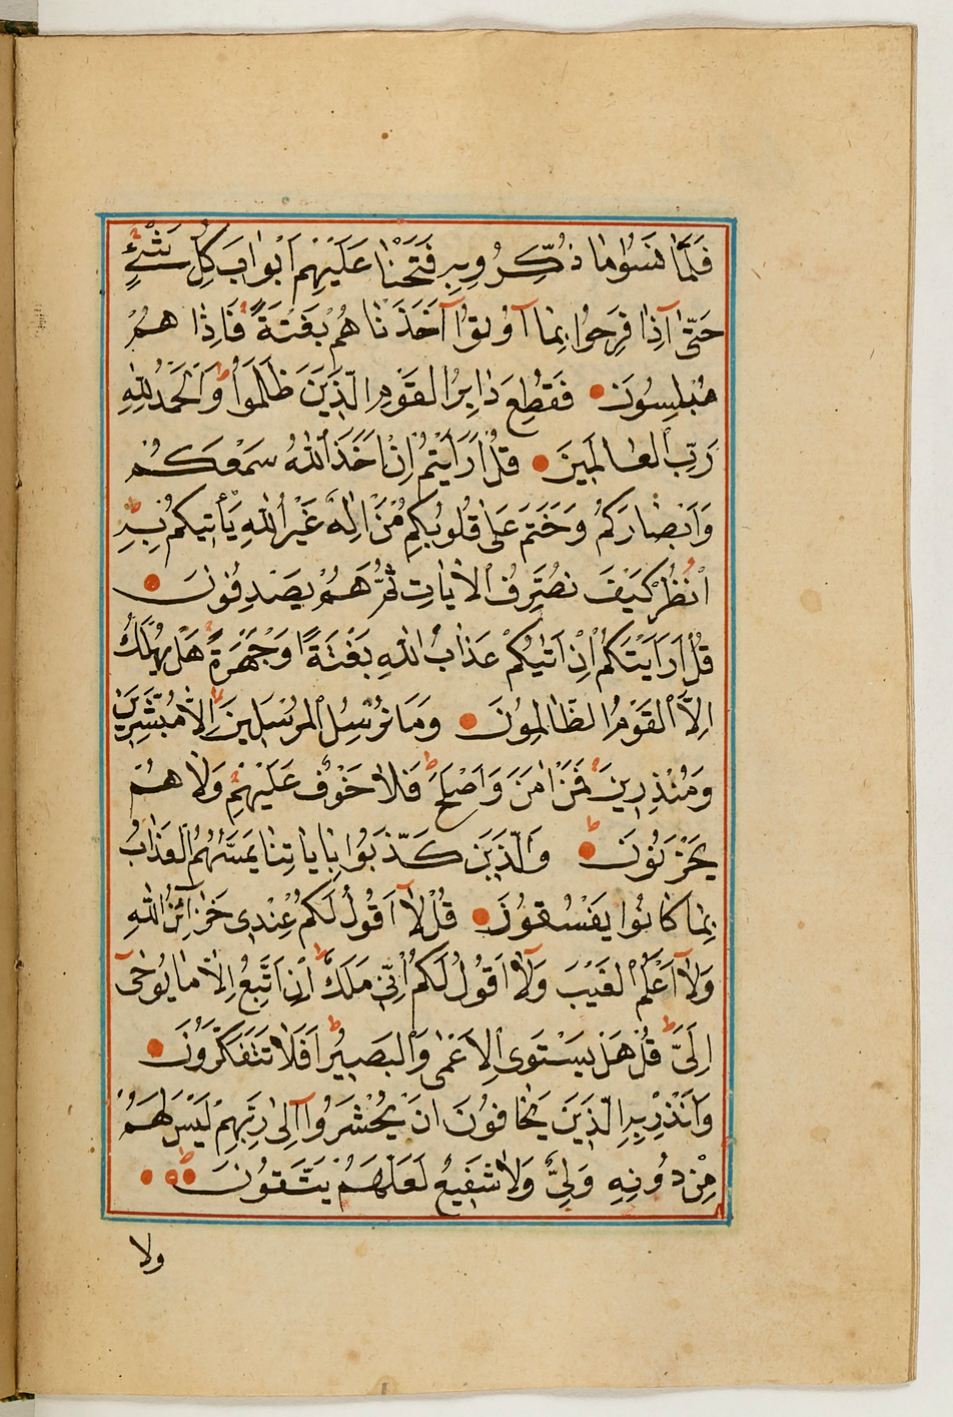 فَلَمَّا نَسُوا مَا ذُكِّرُوا بِهِ فَتَحْنَا عَلَيْهِمْ اَبْوَابَ كُلِّ شَيْءٍ
حَتّٰى اِذَا فَرِحُوا بِمَا اُوتُوا اَخَذْنَاهُمْ بَغْتَةً فَاِذَا هُمْ
مُبْلِسُونَ فَقُطِعَ دَابِرُ الْقَوْمِ الَّذِينَ ظَلَمُوا وَالْحَمْدُ لِلّٰهِ
رَبِّ الْعَالَمِينَ قُلْ اَرَاَيْتُمْ اِنْ اَخَذَ اللّٰهُ سَمْعَكُمْ
وَاَبْصَارَكُمْ وَخَتَمَ عَلٰى قُلُوبِكُمْ مَنْ اِلٰهٌ غَيْرُ اللّٰهِ يَأْتِيكُمْ بِهِ
اُنْظُرْ كَيْفَ نُصَرِّفُ الْاٰيَاتِ ثُمَّ هُمْ يَصْدِفُونَ
قُلْ اَرَاَيْتَكُمْ اِنْ اَتٰيكُمْ عَذَابُ اللّٰهِ بَغْتَةً اَوْ جَهْرَةً هَلْ يُهْلَكُ
اِلَّا الْقَوْمُ الظَّالِمُونَ وَمَا نُرْسِلُ الْمُرْسَلِينَ اِلَّا مُبَشِّرِينَ
وَمُنْذِرِينَ فَمَنْ اٰمَنَ وَاَصْلَحَ فَلَا خَوْفٌ عَلَيْهِمْ وَلَا هُمْ
يَحْزَنُونَ وَالَّذِينَ كَذَّبُوا بِاٰيَاتِنَا يَمَسُّهُمُ الْعَذَابُ
بِمَا كَانُوا يَفْسُقُونَ قُلْ لَا اَقُولُ لَكُمْ عِنْدِى خَزَائِنُ اللّٰهِ
وَلَا اَعْلَمُ الْغَيْبَ وَلَا اَقُولُ لَكُمْ اِنِّى مَلَكٌ اِنْ اَتَّبِعُ اِلَّا مَا يُوحٰى
اِلَىَّ قُلْ هَلْ يَسْتَوِى الْاَعْمٰى وَالْبَصِيرُ اَفَلَا تَتَفَكَّرُونَ
وَاَنْذِرْ بِهِ الَّذِينَ يَخَافُونَ اَنْ يُحْشَرُوا اِلٰى رَبِّهِمْ لَيْسَ لَهُمْ
مِنْ دُونِهِ وَلِىٌّ وَلَا شَفِيعٌ لَعَلَّهُمْ يَتَّقُونَ
ولا